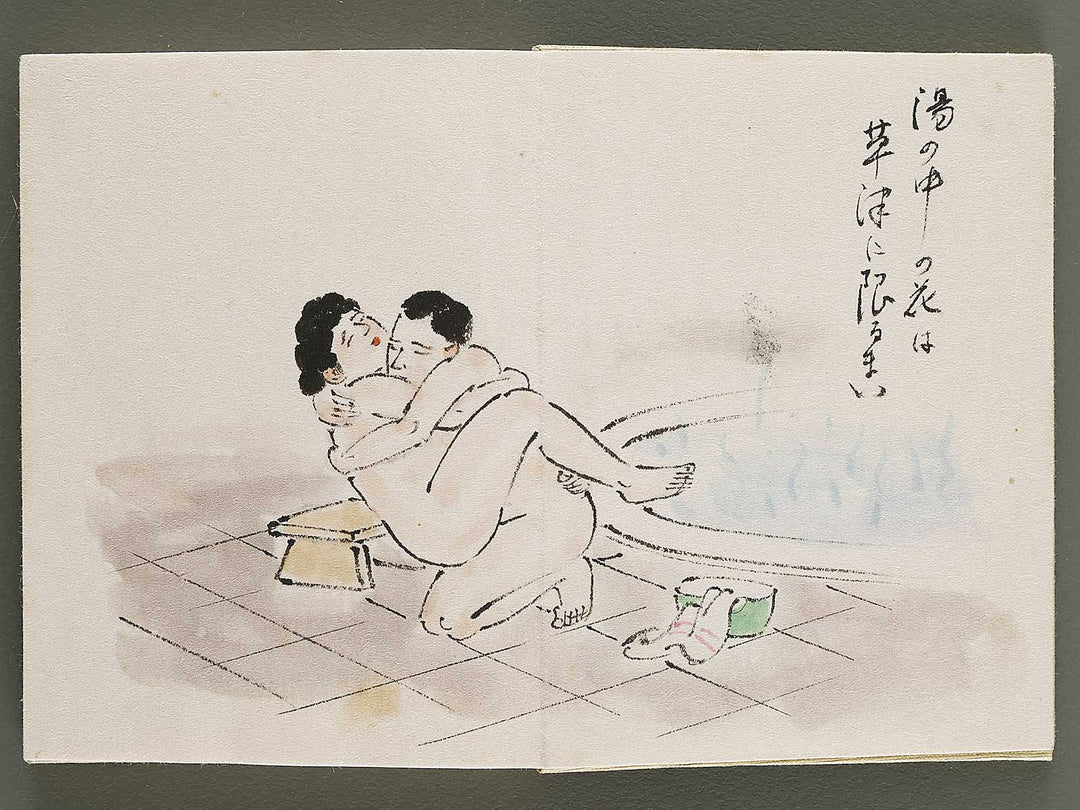 湯の中の花は
草津に限るまい